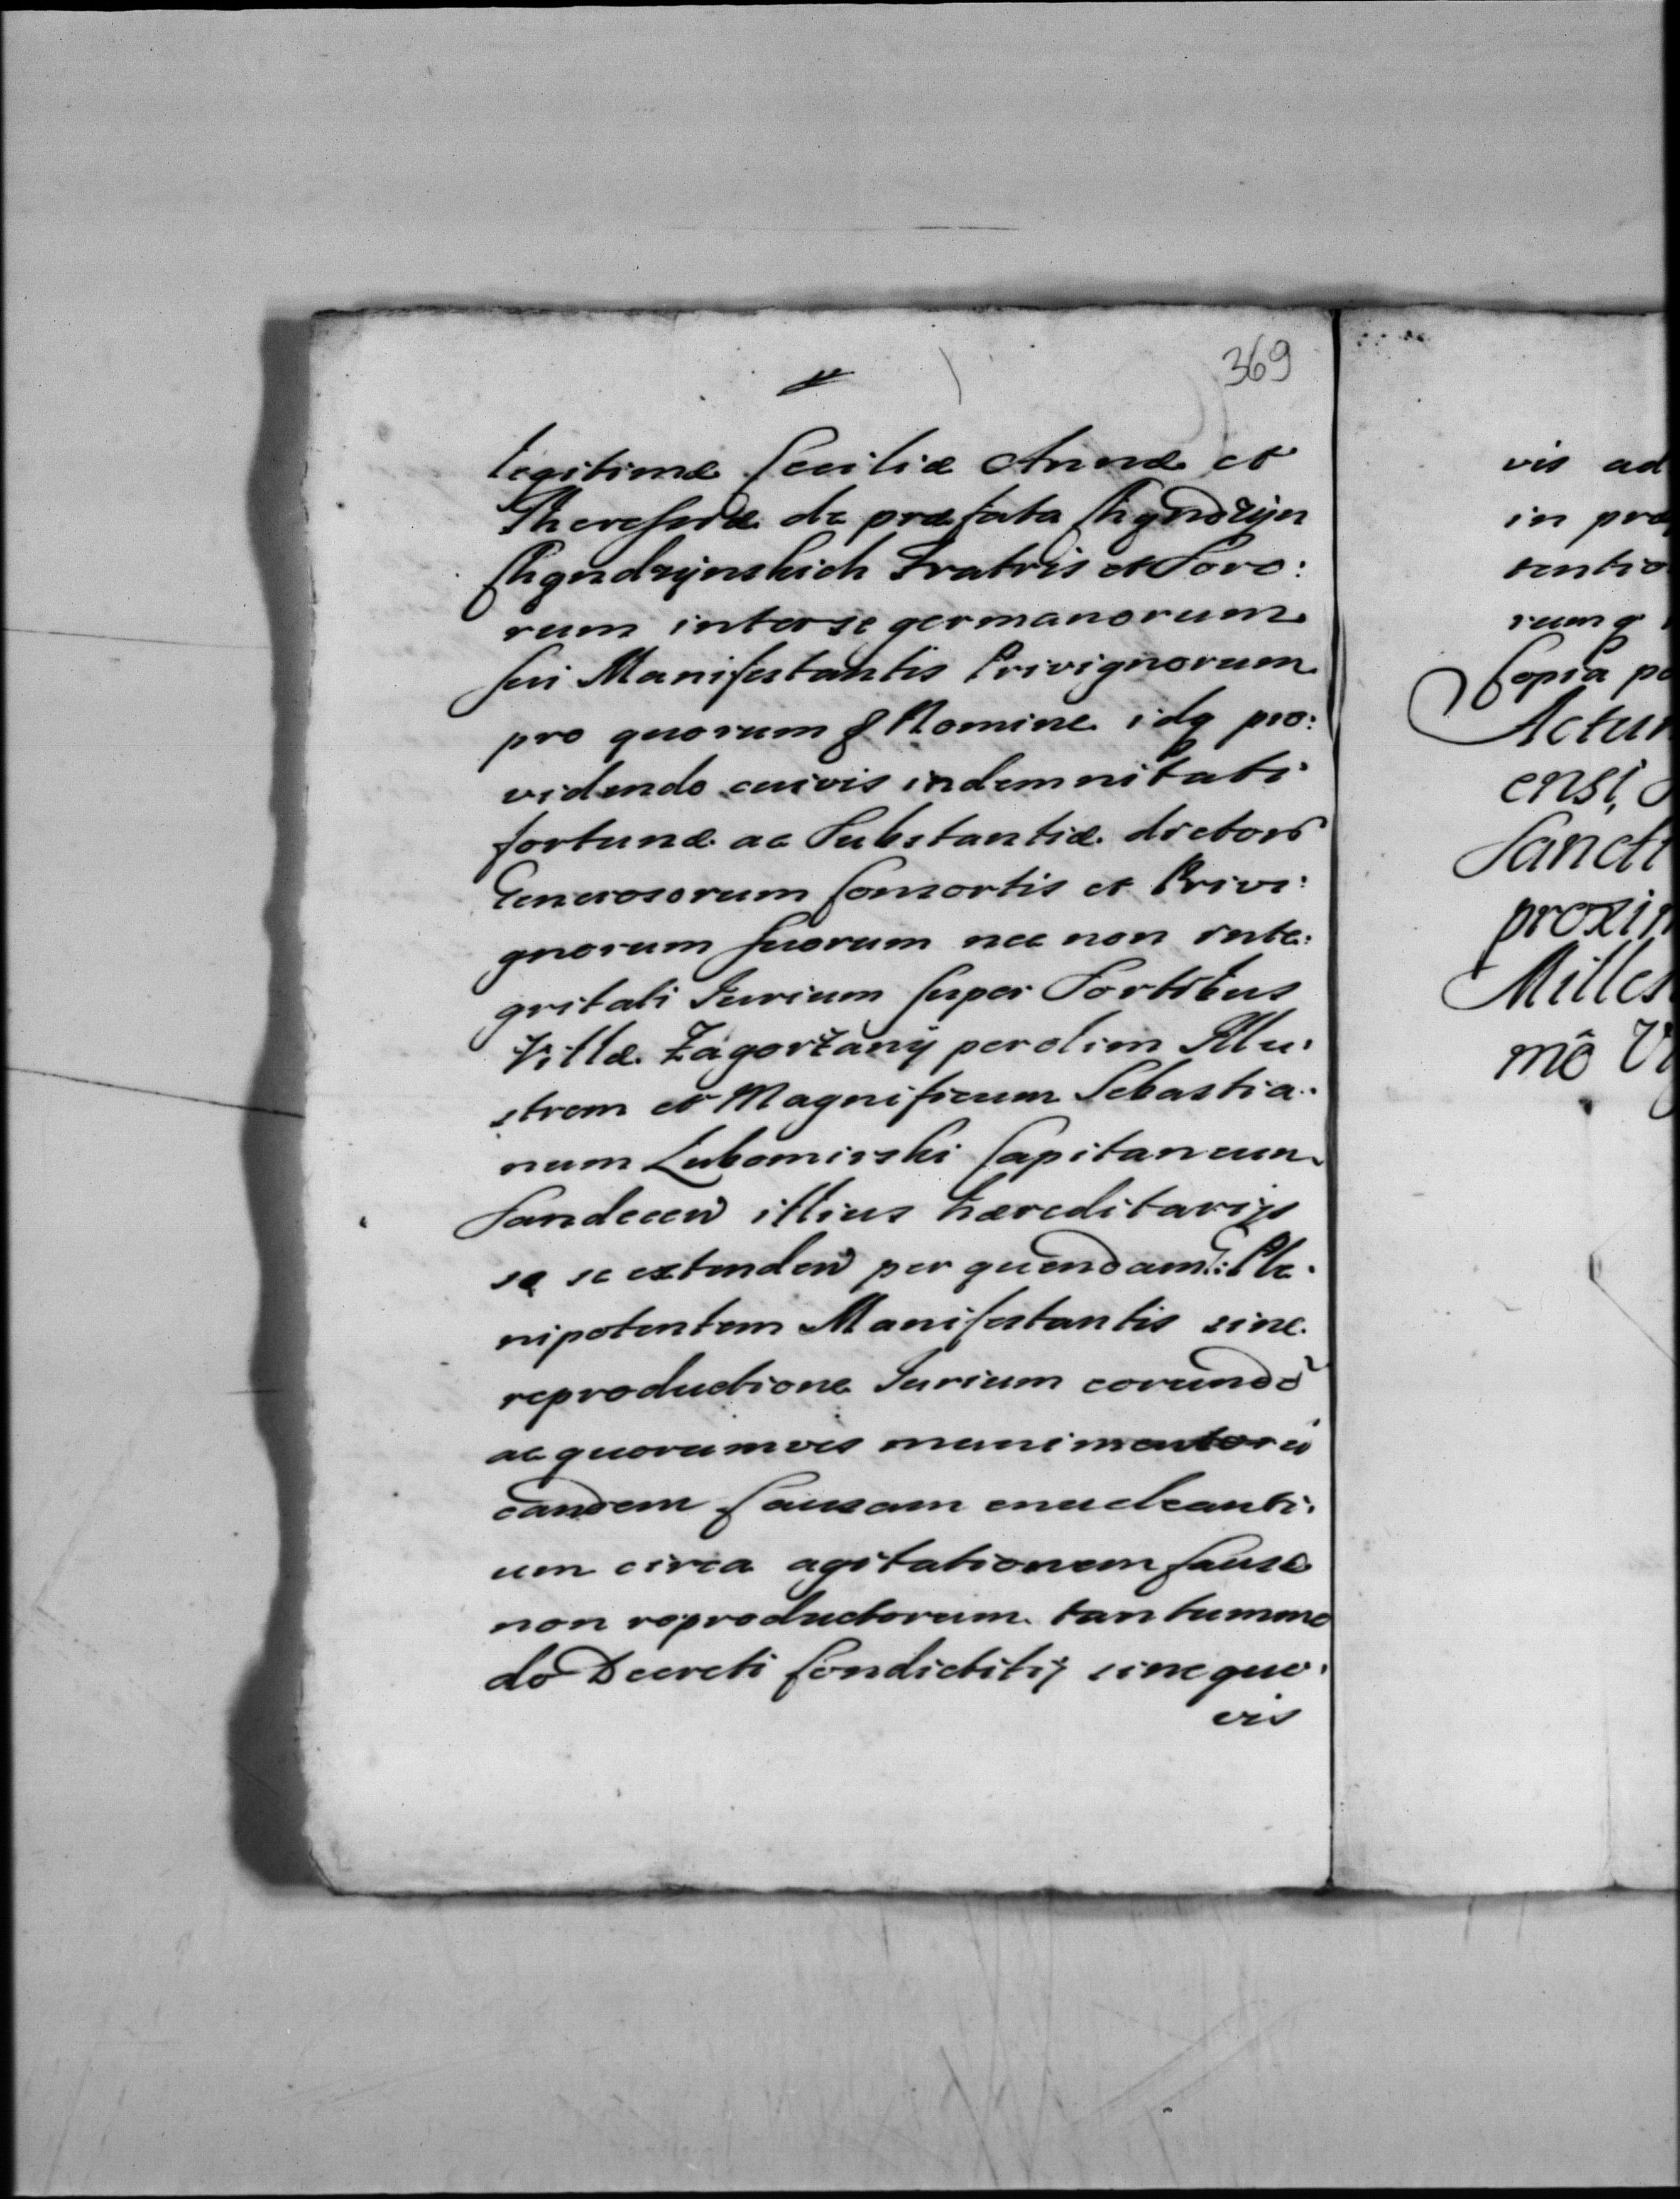 369
legitimæ Ceciliæ Annæ et
Theressiæ de præfata Chyndzijn
Chyndzijnskich Fratris et Soro:
rum inter se germanorum
sui Manifestantis Privignorum
pro quorum & Nomine idq pro:
videndo cuivis indemnitati
fortunæ ac Substantiæ dictorũ
Generosorum Consortis et Privi:
gnorum suorum nec non inte:
gritati Jurium super Sortibus
Villæ Zagorżanÿ per olim Illu:
strem et Magnificum Sebastia:
num Lubomirski Capitaneum
Sandeceñ illius hæreditarijs
se se extendeñ per quendam G: Ple:
nipotentem Manifestantis sine
reproductione Jurium eorundẽ
ac quorumvis munimentorũ
eandem Causam enucleanti:
um circa agitationem Causæ
non reproductorum tantummo
do Decreti Condictitij sine quo:
vis
vis ad
in præ
tentio
rumq
Copia po
Actum
ensi,
Sancti
proxim
Milles
mô